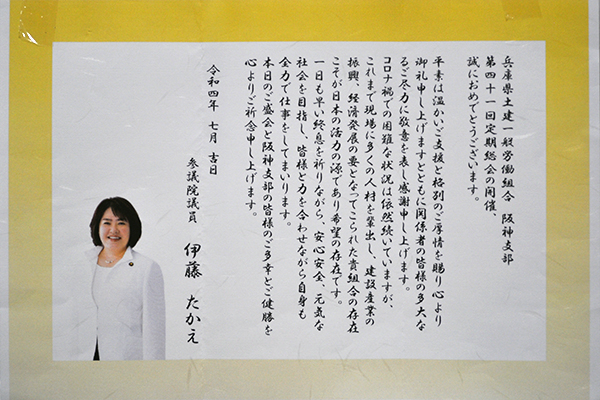 兵庫県土建一般労働組合 阪神支部
第四十一回定期総会の開催、
誠におめでとうございます。
平素は温かいご支援と格別のご厚情を賜り心より
御礼申し上げますとともに関係者の皆様の多大な
るご尽力に敬意を表し感謝申し上げます。
コロナ禍での困難な状況は依然続いていますが、
これまで現場に多くの人材を輩出し、建設産業の
振興、経済発展の要となってこられた貴組合の存在
こそが日本の活力の源であり希望の存在です。
一日も早い終息を祈りながら、安心安全、元気な
社会を目指し、皆様と力を合わせながら自身も
全力で仕事をしてまいります。
本日のご盛会と阪神支部の皆様のご多幸とご健勝を
心よりご祈念申し上げます。
令和四年 七月 吉日
参議院議員 伊藤 たかえ